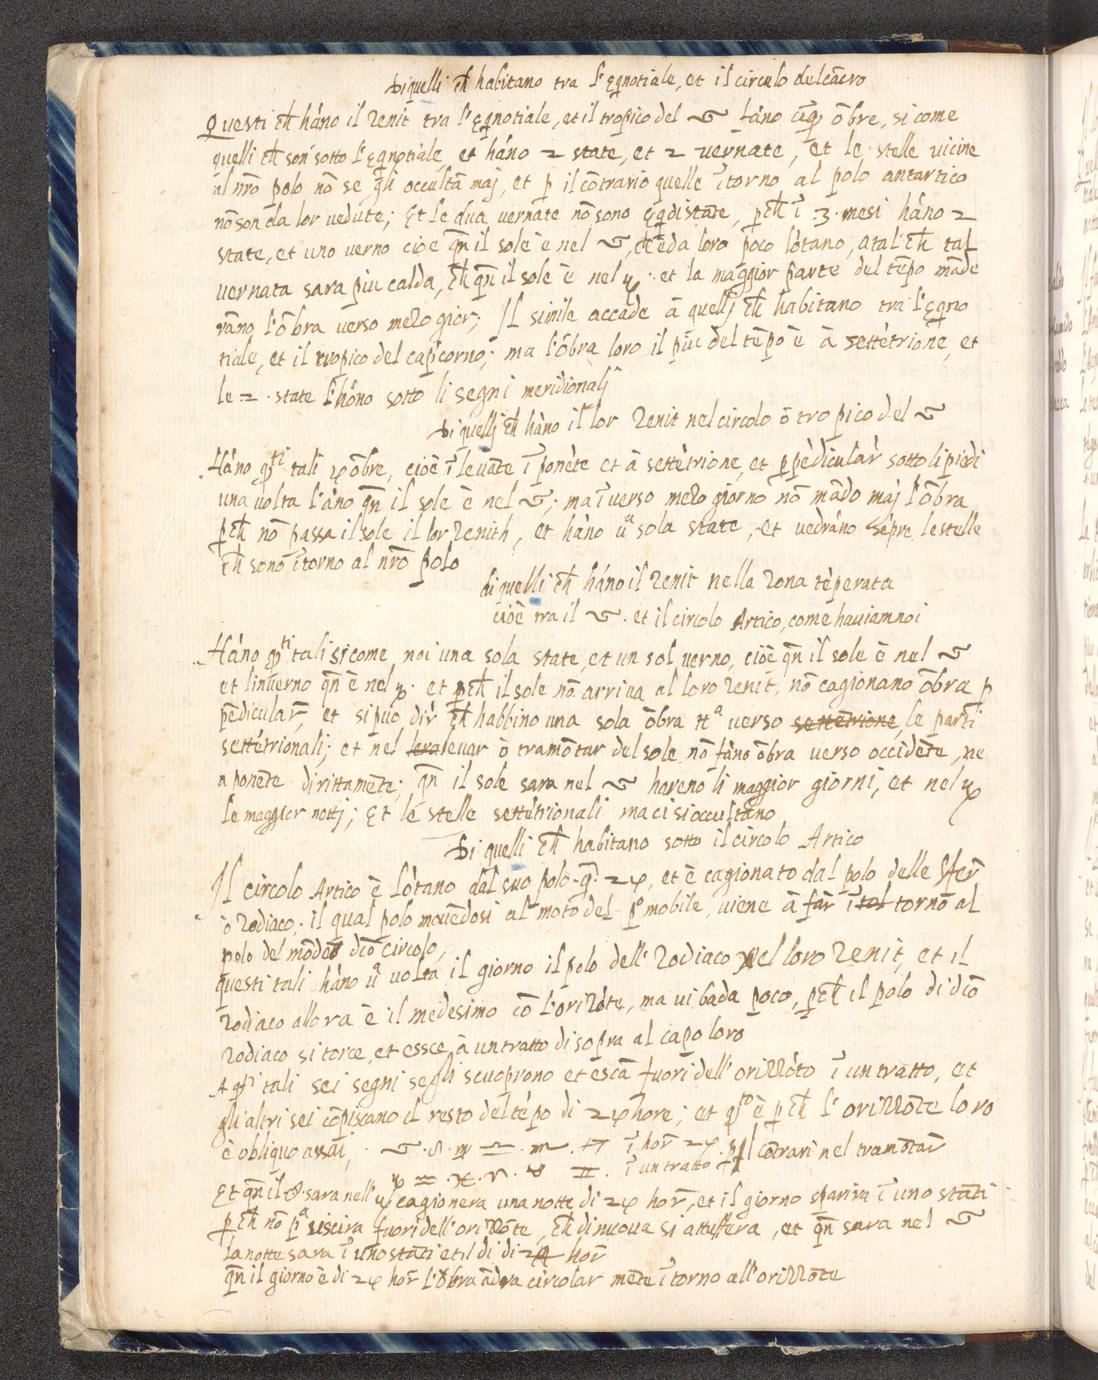 Di quelli ch̄ habitano tra l'eqnotiale, et il circulo del cācro
Questi ch̄ hāno il zenit tra l'eqnotiale, et il tropico del ♋ fāno cīq, ōbre, si come
quelli ch̄ son sotto l'eqnotiale, et hāno 2 state, et 2 vernate, et le stelle vicine
al nr̄o polo nō se gli occultā maj, et p̱ il cōtrario quelle ītorno al polo antartico
nō son da lor vedute; Et le dua vernate nō sono eqdistāte, p̱ch̄ ī 3. mesi hāno 2
state, et uno verno cioè qn̄ il sole è nel ♋, ch̄ è da loro poco lōtano, atal ch̄ tal
vernata sara piu calda, ch̄ qn̄ il sole è nel ♑. et la maggior parte del tēpo māde
rāno l'ōbra verso mezo gior; Il simile accade ā quellj ch̄ habitano tra l'eqno
tiale, et il tropico del capicorno; ma l'ōbra loro il piu del tēpo è ā settētrione, et
le 2. state l'hāno sotto li segni meridionalj
Di quellj ch̄ hāno il lor zenit nel circolo ō tropico del ♋
Hāno qsti tali 4 ōbre, cioè ī levāte ī ponēte et ā settētrione, et p̱pēdicular sotto li piedi
una volta l'āno qn̄ il sole è nel ♋; ma ī verso mezo giorno nō māda maj l'ōbra
p̱ch̄ nō passa il sole il lor zenith, et hāno ūa sola state, et vedrāno sēpre le stelle
ch̄ sono ītorno al nr̄o polo
di quelli ch̄ hāno il zenit nella zona tēperata
cioè tra il ♋. et il circolo Artico, come haviam noi
Hāno qsti tali si come noi una sola state, et un sol verno, cioè qn̄ il sole è nel ♋
et l'inverno qn̄ è nel ♑. et p̱ch̄ il sole nō arriva al loro zenit, nō cagionano ōbra p̱
pēdicular, et si può dir ch̄ habbino una sola ōbra rta verso settētrione, le parti
settētrionali; et nel levar ō tramōtar del sole nō fāno ōbra verso occidēte, ne
a ponēte dirittamēte; qn̄ il sole sara nel ♋ hareno li maggior giorni, et nel ♑
le maggior nottj; Et le stelle settētrionali ma ci si occultano
Di quelli ch̄ habitano sotto il circolo Artico
Il circolo Artico è lōtano dal suo polo g. 24, et è cagionato dal polo delle sfer
ò zodiaco; il qual polo movēdosi al moto del po mobile, viene ā far ī tal torno al
polo del mōdo dc̄o circolo,
questi tali hāno ūa volta il giorno il polo dell' zodiaco nel loro zenit, et il
zodiaco allora è il medesimo cō l'orizōte, ma vi bada poco, p̱ch̄ il polo di dc̄o
zodiaco si torce, et essce ā un tratto di sopra al capo loro
A qsti tali sei segni se gli scuoprono et escā fuori dell' orizzōto ī un tratto, et
gli altri sei cōpiscano il resto del tēpo di 24 hore; et qsto è p̱ch̄ l' orizzōte loro
è obliquo assai, ♋. ♌. ♍ ♎. ♏. ♐ ī hor̄ 24. p̱ il cōtrari nel tramōtar
♑ ♒. ♓. ♈. ♉ ♊. ī un tratto
Et qn̄ il ☉. sara nell' ♑ cagionera una notte di 24 hor̄, et il giorno sparira ī uno stāti
p̱ch̄ nō pa uscira fuori dell' orizōte, ch̄ di nuova si attuffera, et qn̄ sara nel ♋
la notte sara ī uno stāti et il dì di 24 hor̄
qn̄ il giorno è di 24 hor̄ l'ōbra ādra circolar mēte ītorno all' orizzōte